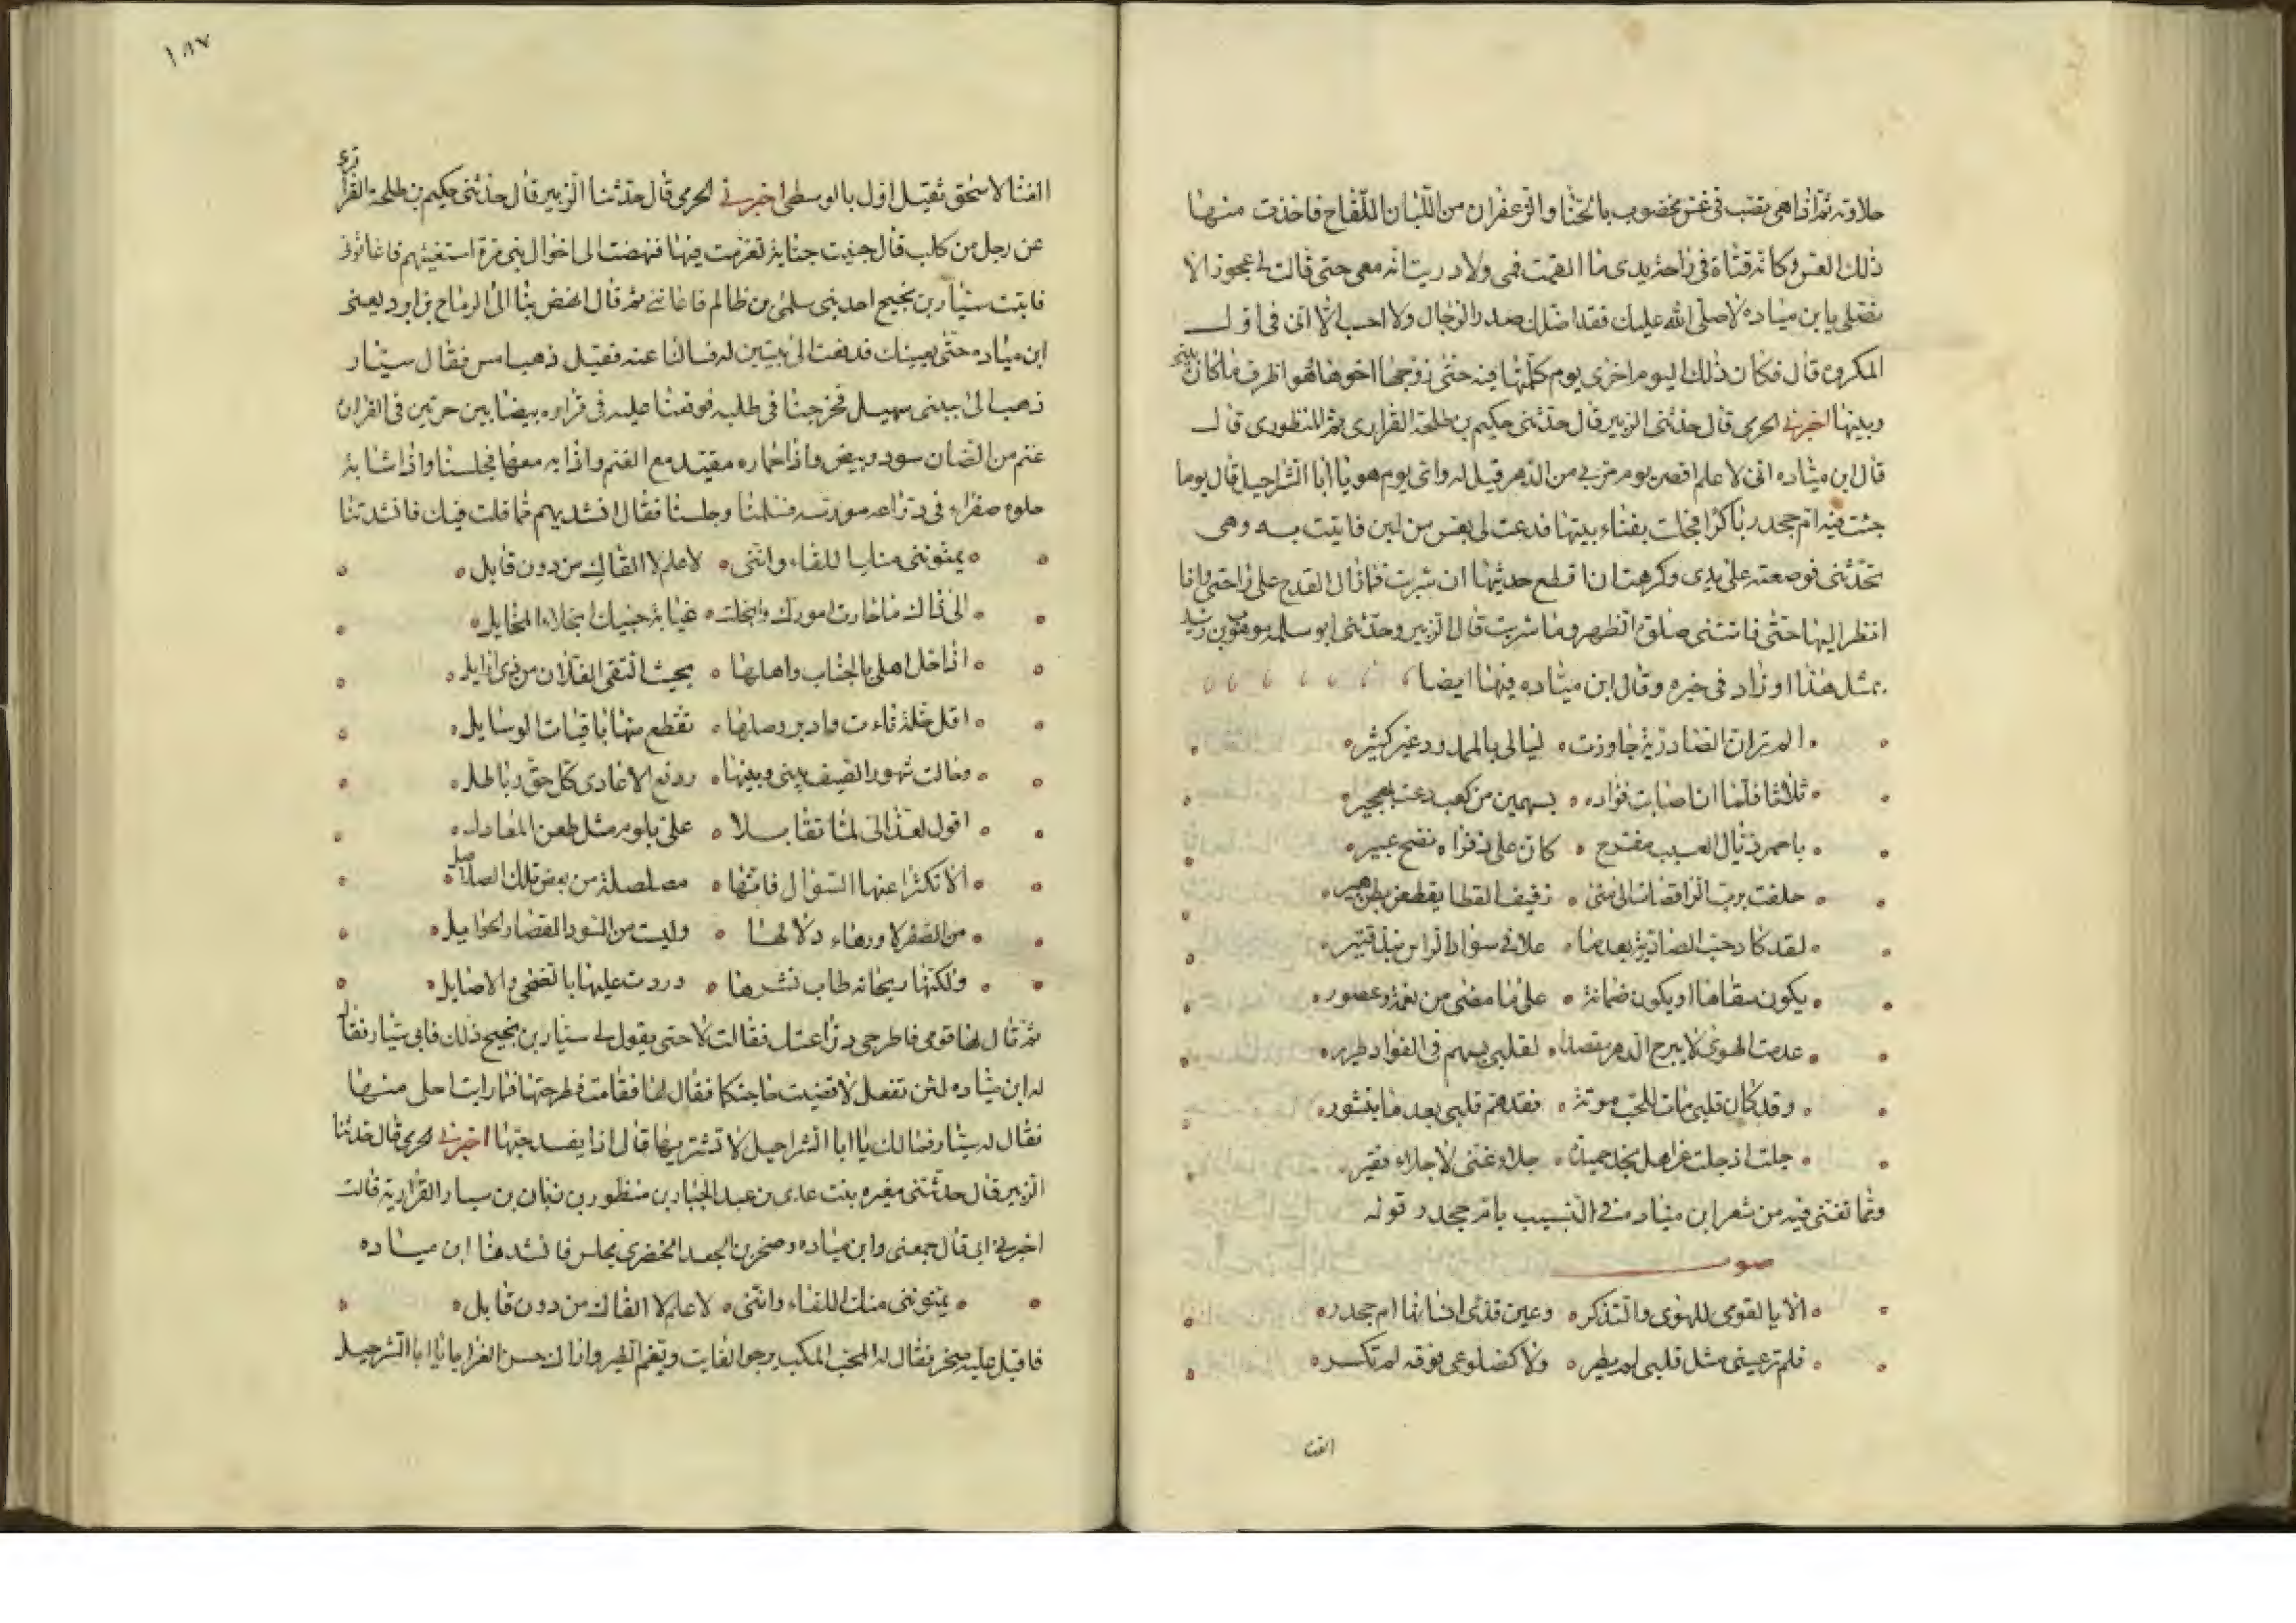 حلاوته ثم اذا هي تقتب في عس مخضوب بالحنا والزعفران من اللبان اللقاح فاخذت منها
ذلك العس وكانه قناة في راحة يدي ما القمت فمي ولا دريت انه معي حتى قالت لي عجوز الا
تصلي يا بن مياده لا صلى الله عليك فقد اضلك صدر الرجال ولا احسب الا اني في اول
المكروه قال فكان ذلك اليوم اخر يوم كلمتها فيه حتى زوجها اخوها فهو اظرف ما كان بيني
وبينها اخبرني الحرمي قال حدثني الزبير قال حدثني حكيم بن طلحة الفزاري ثم المنظوري قال
قال ابن مياده اني لاعلم اقصر يوم مر بي من الدهر قيل له واي يوم هو يا ابا الشراحيل قال يوما
جئت فيه ام جحدر باكرا فجلت بفناء بيتها فدعت لي بعس من لبن فاتيت به وهي
تحدثني فوضعته على يدي وكرهت ان اقطع حديثها ان شربت فما زال القدح على راحتي وانا
انظر اليها حتى فاتتني صلوة الظهر وما شربت قال الزبير وحدثني ابو سلمه موهوب بن رشيد
بمثل هذا او زاد في خبره وقال ابن مياده فيها ايضا
الم تر ان الصادرية جاورت ليالي بالممدود غير كثير
ثلاثا فلما ان اصابت فؤاده بسهمين من كعب دعت بهجير
باحمر ذيال العسيب مفرج كان على ذفراه نضح عبير
حلفت برب الراقصات الى منى زفيف القطا يقطعن بطن هبير
لقد كاد حب الصادرية بعد ما علا في سواد الراس نبذ قتير
يكون سقاما او يكون ضمانة على ما مضى من نعمة وعصور
عدمت الهوى لا يبرح الدهر مقصدا لقلبي بسهم في الفواد طرير
وقد كان قلبي مات للحب موتة فقد هم قلبي بعد ما بنشور
جلت اذ جلت عن اهل نجد حميدة جلاء غني لا جلاء فقير
ومما تغنى فيه من شعر ابن مياده في النسيب بام جحدر قوله
صوت
الا يا لقومي للهوى والتذكر وعين قذى انسانها ام جحدر
فلم تر عيني مثل قلبي لم يطر ولا كضلوعي فوقه لم تكسر
الغنا
١٨٧
الغنا لاسحق ثقيل اول بالوسطى اخبرني الحرمي قال حدثنا الزبير قال حدثني حكيم بن طلحة الفزاري
عن رجل من كلب قال جنيت جناية فغرمت فيها فنهضت الى اخوال بني مرة استغيثهم فاغاثوني
فاتيت سيار بن نجيح احد بني سلمى بن ظالم فاعانني ثم قال انهض بنا الى الرماح بن ابرد يعني
ابن مياده حتى يعينك فدفعت الى بيتين له فسالنا عنه فقيل ذهب امس فقال سيار
ذهب الى جبني سهيل فخرجنا في طلبه فوقعنا عليه في قراره بيضا بين حرتين في القراره
غنم من الضان سود وبيض واذا حماره مقيد مع الغنم واذا به معها فجلسنا واذا شابة
حلوه صفراء في دراعه مورسه فسلمنا وجلسنا فقال انشديهم مما قلت فيك فانشدتنا
يمنونني منك اللقاء وانني لاعلم لا القاك من دون قابل
الى ذاك ما حارت امورك وانجلت غيابة حبيك انجلاء المخايل
اذا حل اهلي بالجناب واهلها بحيث التقى الغلان من ذي ارايل
اقل خلة ناءت وادبر وصلها تقطع منها باقيات الوسايل
وحالت شهور الصيف بيني وبينها ورفع الاعادي كل حق وباطل
اقول لعذالي لما تقابلا علي بلوم مثل طعن المعابل
لا تكثرا عنها السؤال فانها مصلصلة من بعض تلك الصلاصل
من الصفر لا ورهاء دلالها وليست من السود القصار الحوايل
ولكنها ريحانه طاب نشرها وردت عليها بالضحى والاصايل
ثم قال لها قومي فاطرحي دراعتك فقالت لا حتى يقول لي سيار بن نجيح ذلك فابى سيار فقال
له ابن مياده لئن لم تفعل لا قضيت حاجتكما فقال لها فقامت فطرحتها فما رايت احلى منها
فقال له سيار فما لك يا ابا الشراحيل لا تشتريها قال اذا يفسد حبها اخبرني الحرمي قال حدثنا
الزبير قال حدثتني مغيره بنت عدي بن عبد الجبار بن منظور بن زبان بن سيار الفزاريه قالت
اخبرني ابي قال جمعني وابن مياده وصخر بن الجعد الخضري مجلس فانشدنا ابن مياده
يمنونني منك اللقاء وانني لاعلم لا القاك من دون قابل
فاقبل عليه صخر فقال له المحب المكب يرجو الفايت ويغم الطير واراك حسن العزا يا ابا الشرحيل